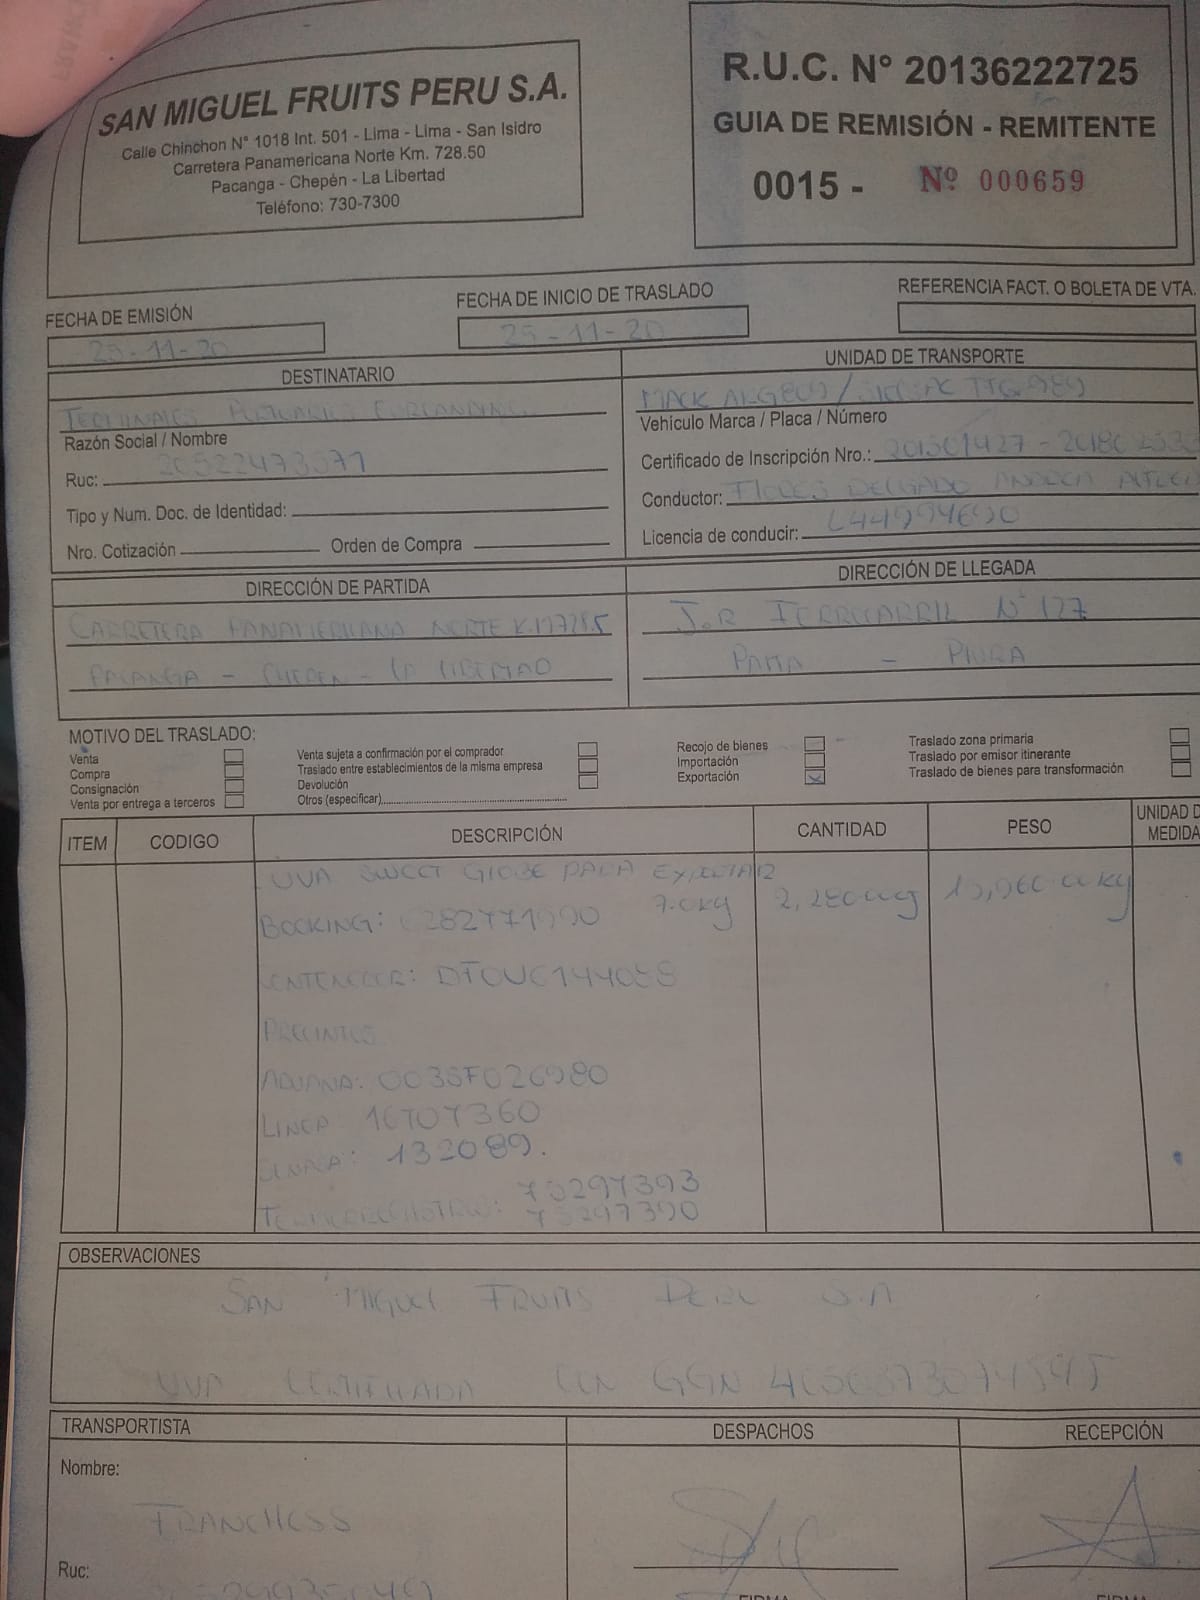 SAN MIGUEL FRUITS PERU S.A.
Calle Chinchon N° 1018 Int. 501 - Lima - Lima - San Isidro
Carretera Panamericana Norte Km. 728.50
Pacanga - Chepén - La Libertad
Teléfono: 730-7300
R.U.C. N° 20136222725
GUIA DE REMISIÓN - REMITENTE
0015 - Nº 000659
FECHA DE EMISIÓN
25-11-20
FECHA DE INICIO DE TRASLADO
25-11-20
REFERENCIA FACT. O BOLETA DE VTA.
DESTINATARIO
TERMINALES PORTUARIOS EUROANDINOS
Razón Social / Nombre
Ruc: 20522473571
Tipo y Num. Doc. de Identidad:
Nro. Cotización Orden de Compra
UNIDAD DE TRANSPORTE
MACK
Vehículo Marca / Placa / Número
Certificado de Inscripción Nro.: 201501427 -
Conductor: FLORES DELGADO
Licencia de conducir: L44994690
DIRECCIÓN DE PARTIDA
CARRETERA PANAMERICANA NORTE
PACANGA - CHEPEN - LA LIBERTAD
DIRECCIÓN DE LLEGADA
J.R FERROCARRIL N° 127
PAITA - PIURA
MOTIVO DEL TRASLADO:
Venta
Compra
Consignación
Venta por entrega a terceros
Venta sujeta a confirmación por el comprador
Traslado entre establecimientos de la misma empresa
Devolución
Otros (especificar)
Recojo de bienes
Importación
Exportación X
Traslado zona primaria
Traslado por emisor itinerante
Traslado de bienes para transformación
ITEM CODIGO DESCRIPCIÓN CANTIDAD PESO UNIDAD D MEDIDA
UVA SWEET GLOBE PARA EXPORTAR
BOOKING: 7.0 kg
CONTENEDOR:
PRECINTOS
ADUANA: 003SF026980
LINEA: 16707360
132089.
75297393
75297390
OBSERVACIONES
SAN MIGUEL FRUITS PERU S.A
UVA CERTIFICADA CON GGN
TRANSPORTISTA
Nombre:
FRANCHESS
Ruc:
DESPACHOS
RECEPCIÓN